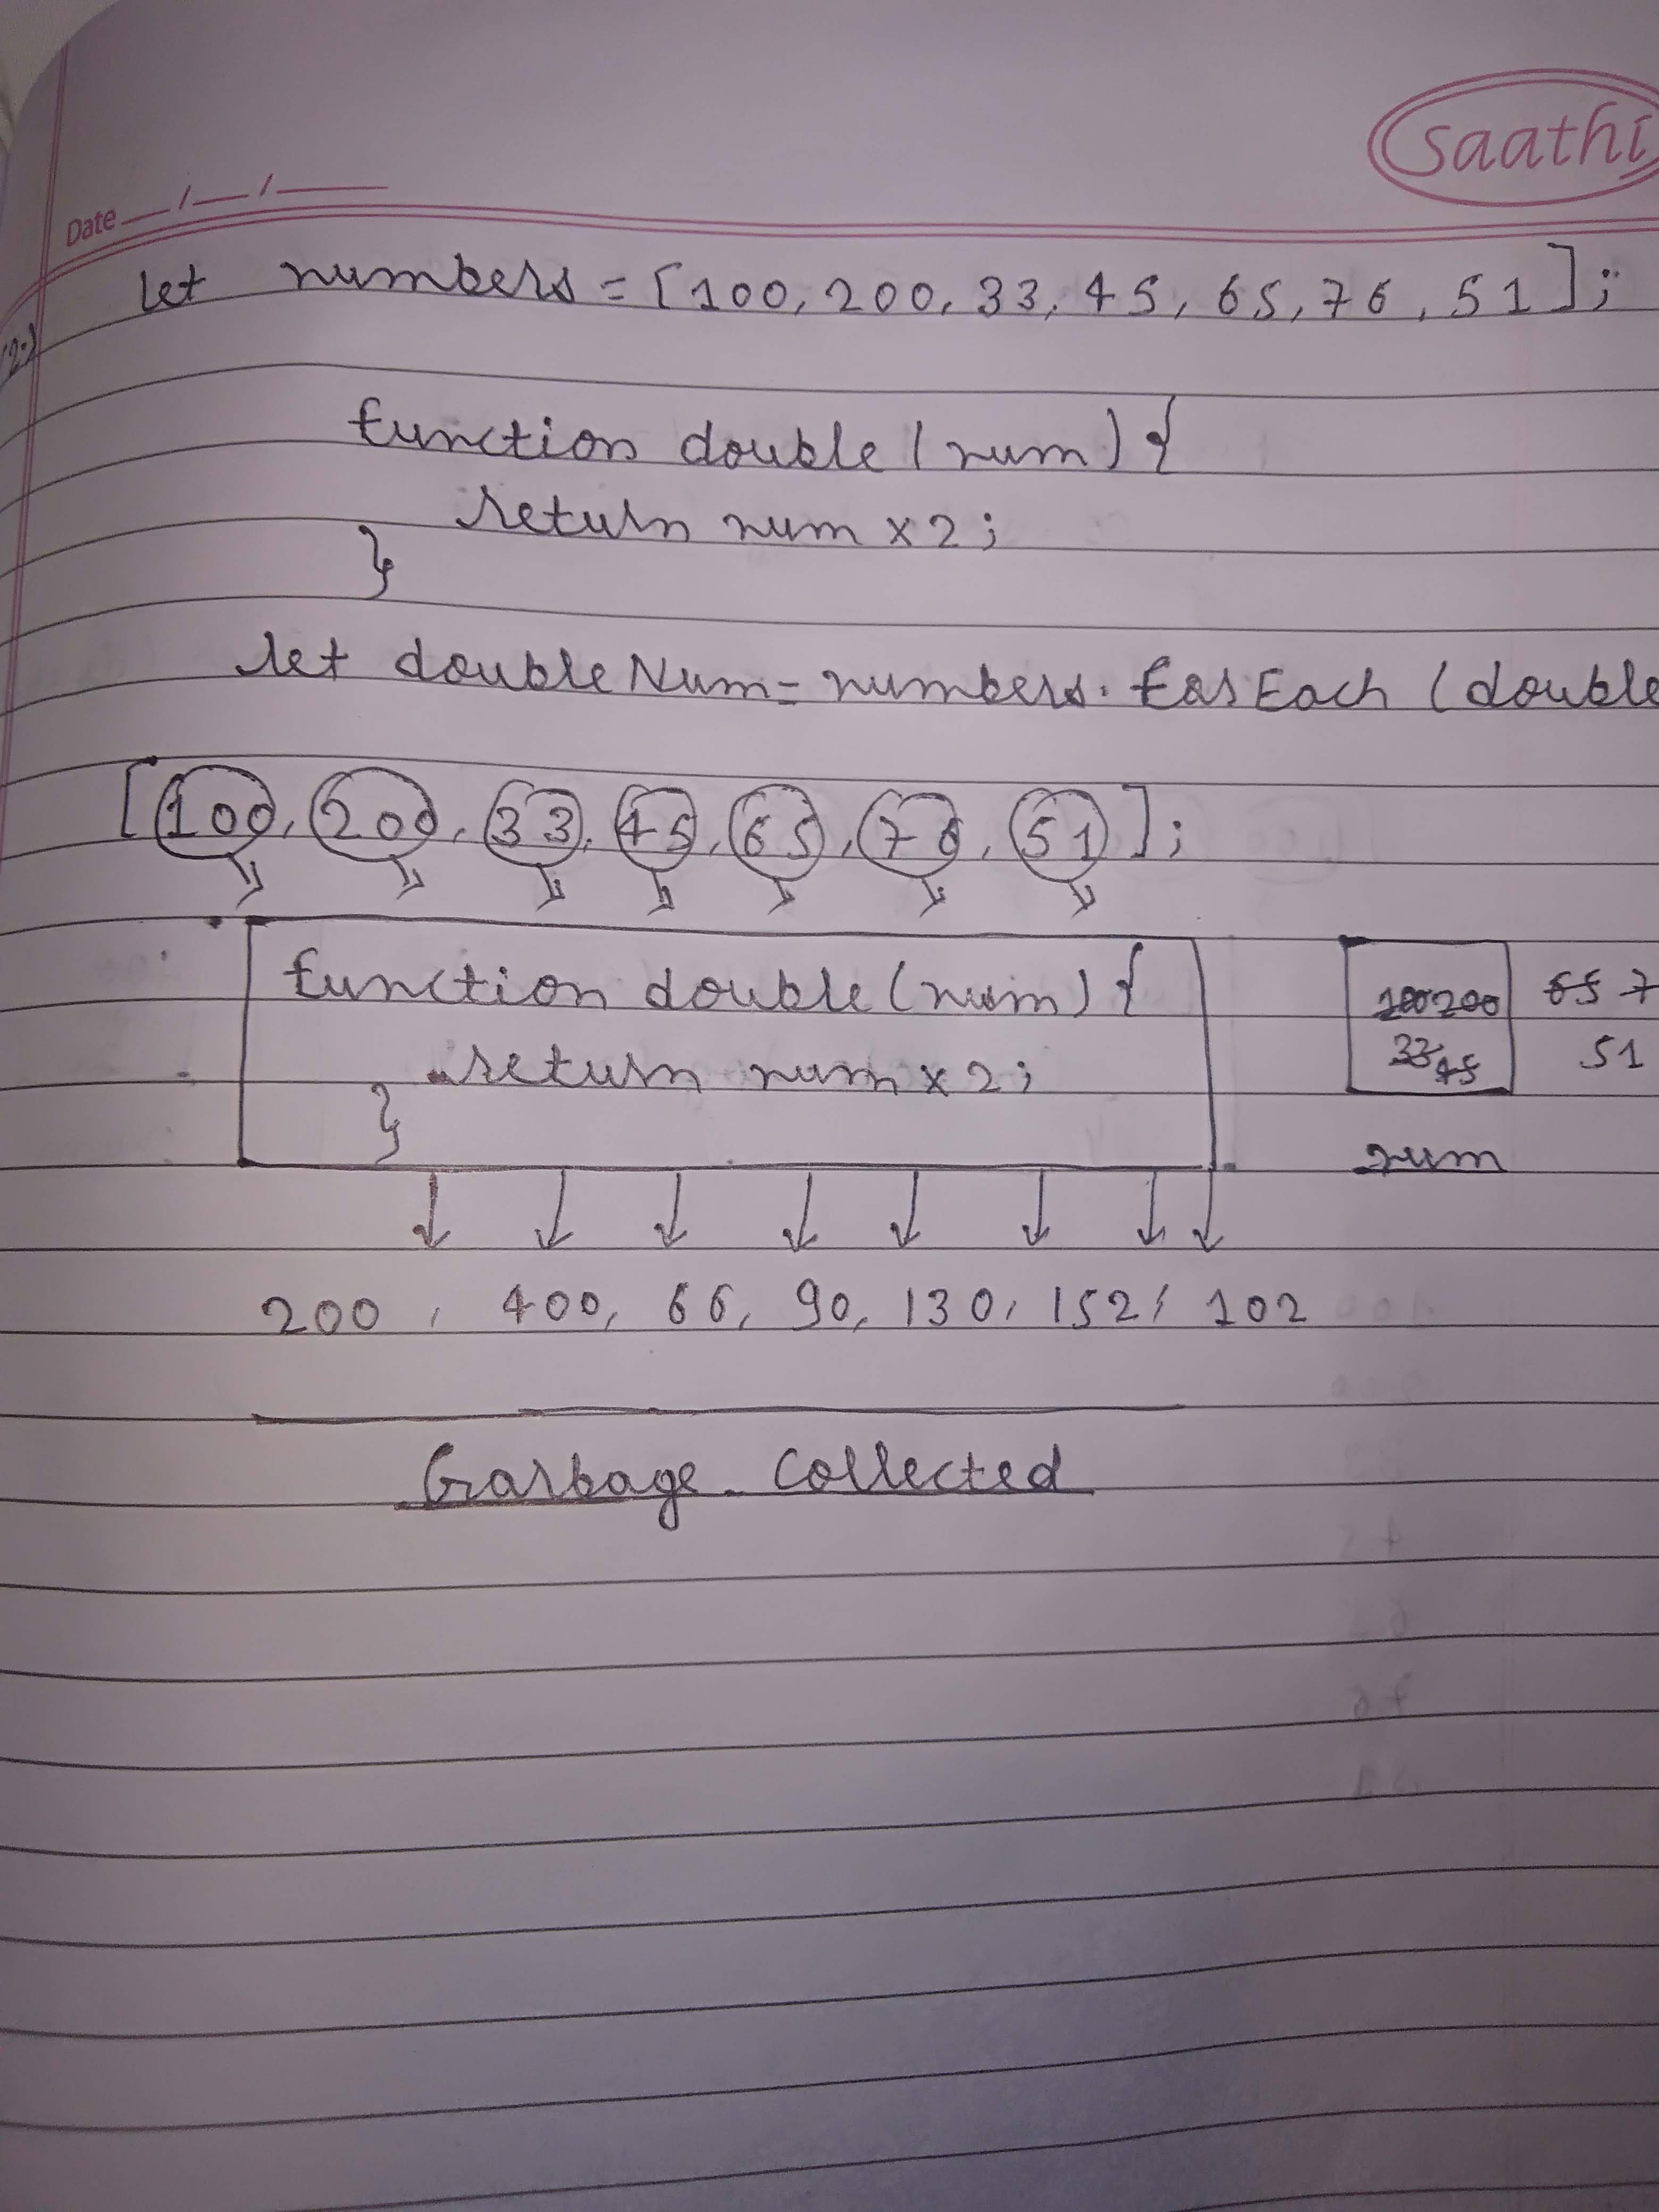 saathi
Date __/__/____
let numbers = [100, 200, 33, 45, 65, 76, 51];
(2.)
function double(num) {
return num x 2;
}
let doubleNum = numbers. forEach (double
[100, 200, 33, 45, 65, 76, 51];
function double(num) {
return num x 2;
}
100 200 65 7
33 45 51
num
200, 400, 66, 90, 130, 152, 102
Garbage collected